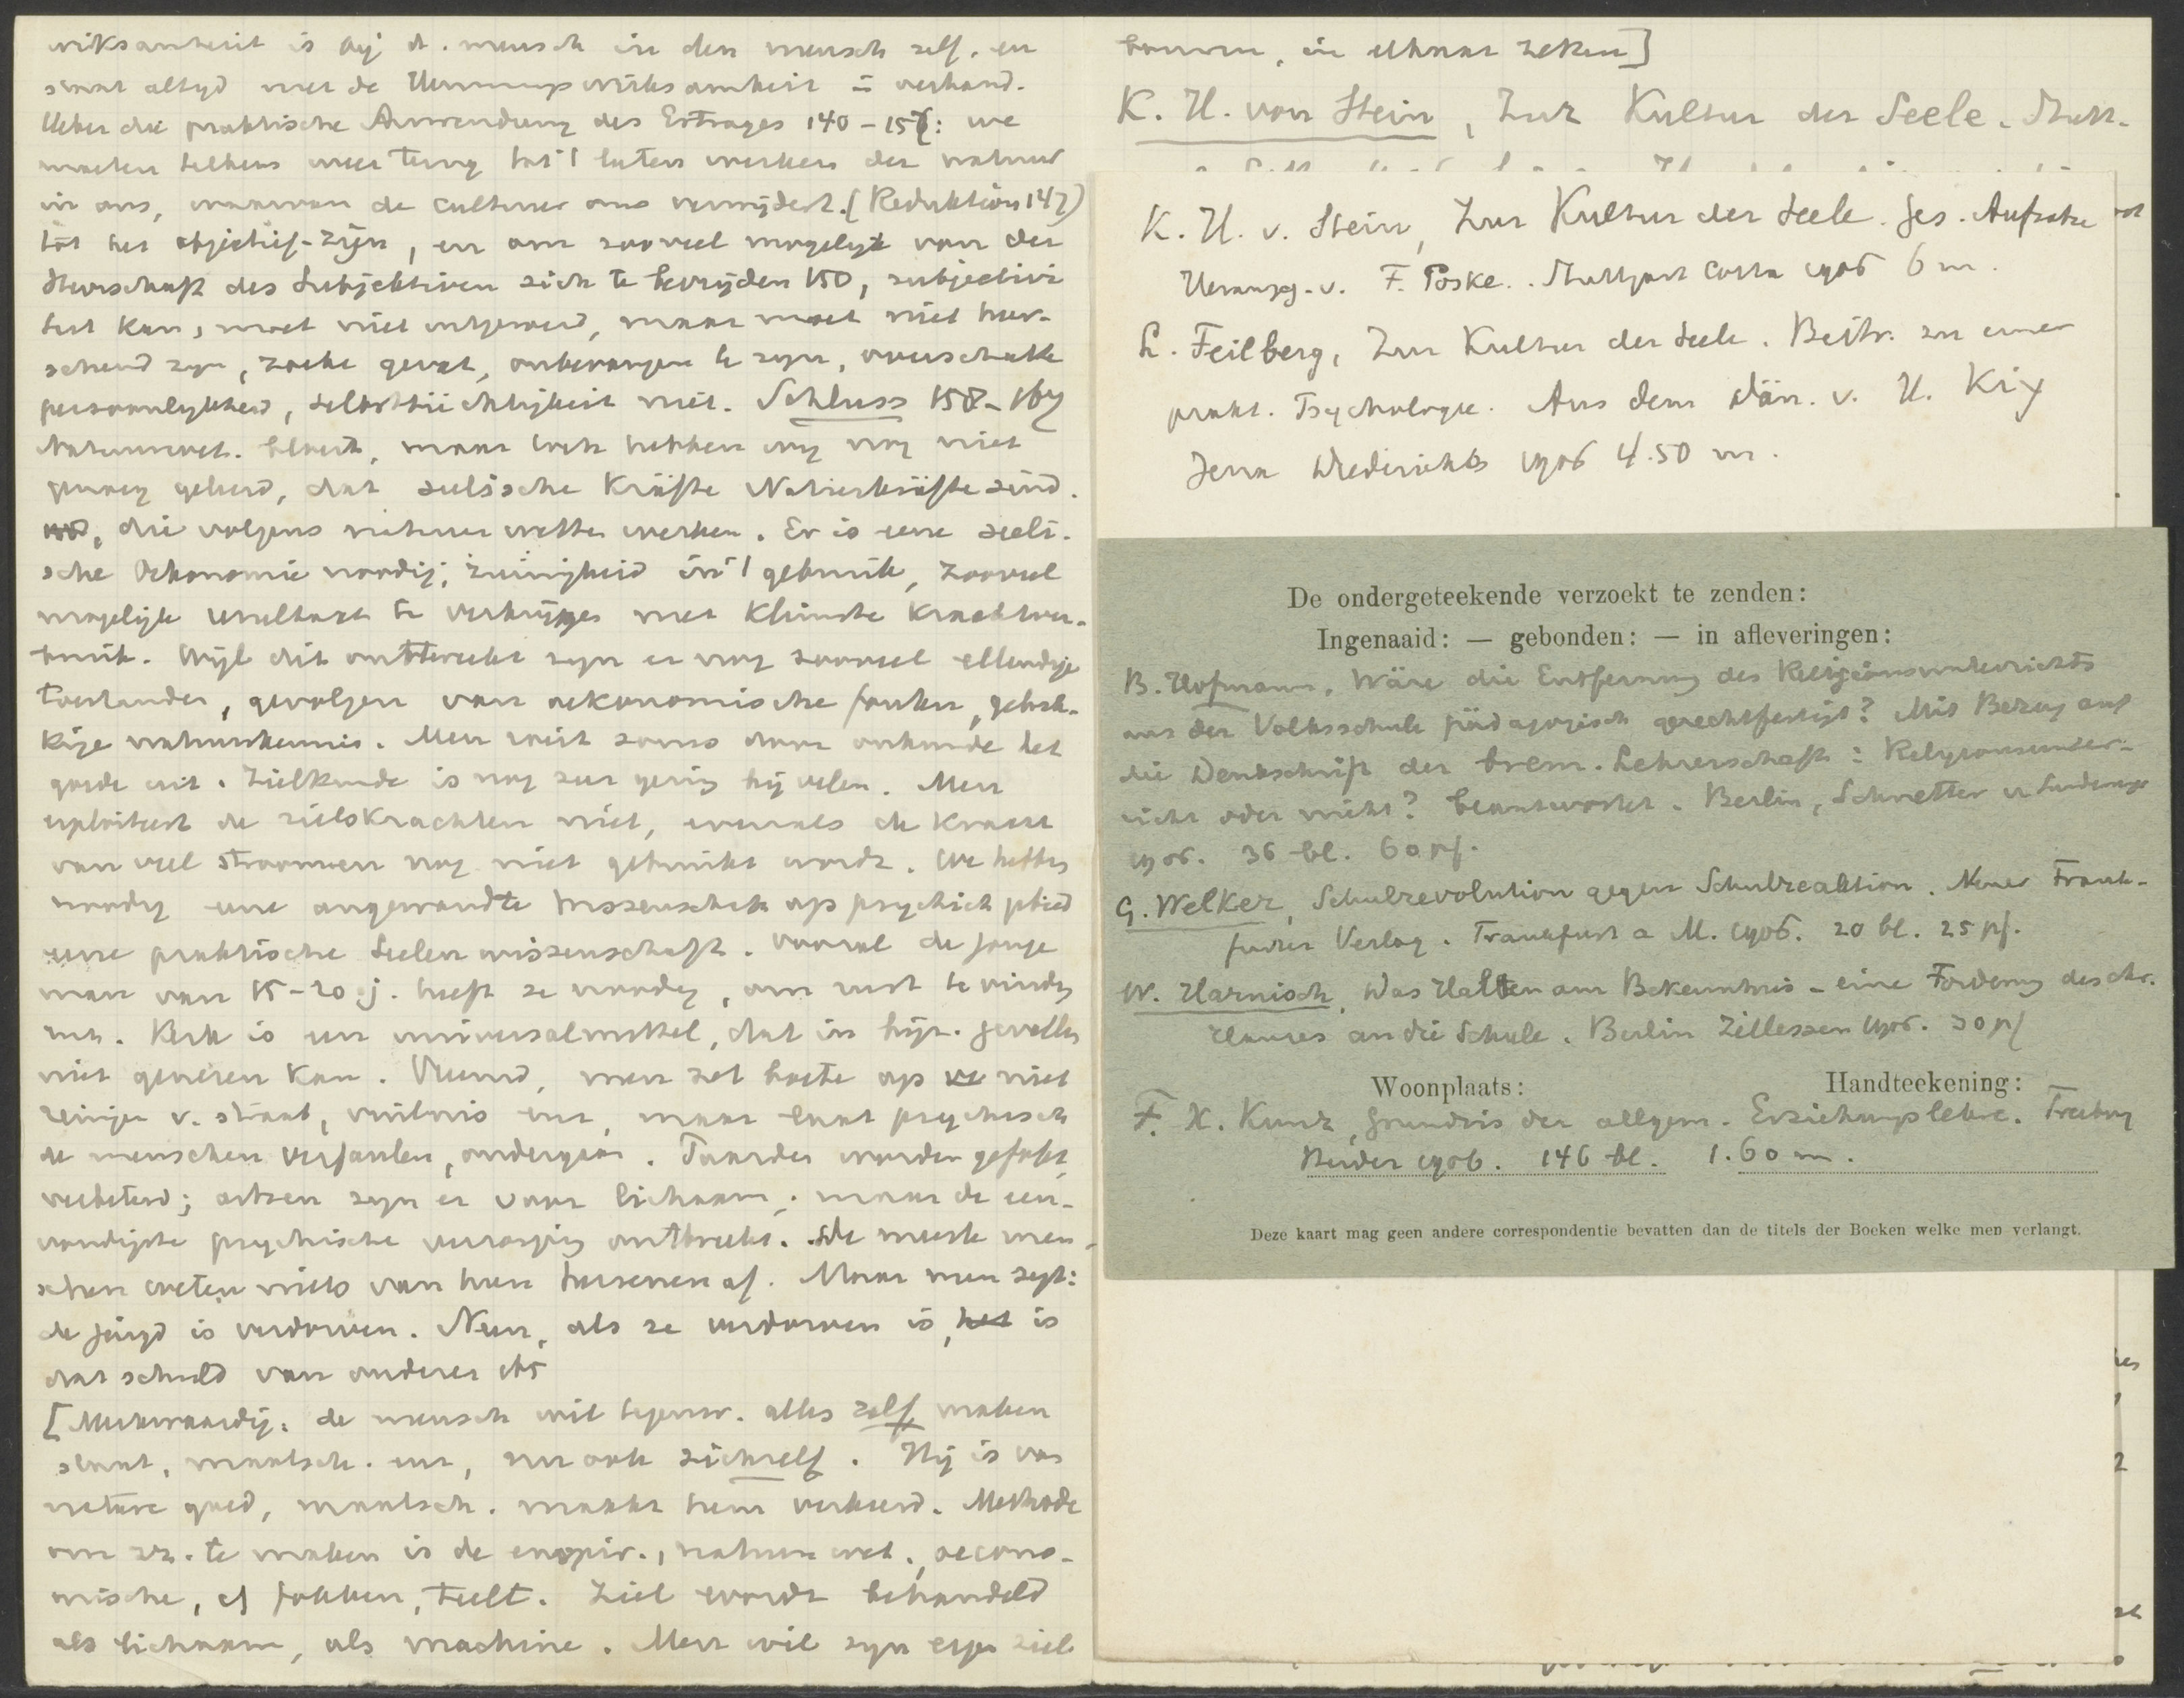 wirksamkeit is bij d. mensch in den mensch zelf, en
altyd met de Hemmungswirksamkeit in verband.
Ueber die praktische Anwendung des Ertrages 140-157: we
moeten telkens weer terug tot 't laten werken der natuur
in ons, waarvan de cultuur ons verwijdert. (Reduktion 147)
tot het objectief-zijn, en om zooveel mogelijk van der
Herrschaft des Subjektiven zich te bevrijden 150, subjectivi
teit kan, moet niet uitgeroeid, maar moet niet heer-
schend zyn, zaak gevat, onbevangen te zyn, overschatte
persoonlykheid, selbstsüchtigkeit niet. Schluss 158-167
Natuurwet. bloeit, maar toch hebben wy nog niet
genoeg geleerd, dat seelische Kräfte Naturkräfte sind.
die volgens natuurwetten werken. Er is eene seeli-
sche Oekonomie noodig; zuinigheid in 't gebruik, zooveel
mogelijk resultaat te verkrijgen met kleinste krachtver-
bruik. Wijl dit ontbreekt zyn er nog zooveel ellendige
toestanden, gevolgen van oekonomische fouten, gebrek-
kige natuurkennis. Men roeit soms door onkunde het
goede uit. Zielkunde is nog zeer gering bij velen. Men
exploiteert de zielskrachten niet, evenals de kracht
van veel stroomen nog niet gebruikt wordt. We hebben
noodig eene angewandte Wissenschaft op psychisch gebied
eene praktische Seelenwissenschaft. Vooral de jonge
man van 15-20 j. heeft ze noodig, om rust te vinden
enz. Kerk is een universalmittel, dat in byz. gevallen
niet genezen kan. Vreemd, men zet boete op niet
reinigen v. straat, vuilnis enz, maar laat psychisch
de menschen verfaulen, ondergaan. Paarden worden gefokt,
verbeterd; artsen zyn er voor lichaam; maar de een-
voudigste psychische verzorging ontbreekt. De meeste men-
schen weten niets van hun hersenen af. Maar men zegt:
de jeugd is verdorven. Neen, als ze verdorven is, is
dat schuld van anderen 165
[Merkwaardig: de mensch wil tegenw. alles zelf maken
staat, maatsch. enz, nu ook zichzelf. Hij is van
nature goed, maatsch. maakt hem verkeerd. Methode
om zz. te maken is de empir., natuurwet., oecono-
mische, cf fokken, teelt. Ziel wordt behandeld
als lichaam, als machine. Men wil zyn eigen ziel
bouwen, in elkaar zetten]
K. H. von Stein, Zur Kultur der Seele. Stutt-
K. H. v. Stein, Zur Kultur der Seele. Ges. Aufsätze
Herausg. v. F. Poske. Stuttgart Cotta 1906 6 m.
L. Feilberg, Zur Kultur der Seele. Beitr. zu einer
prakt. Psychologie. Aus dem Dän. v. H. Kiy
Jena Diederichs 1906 4.50 m.
De ondergeteekende verzoekt te zenden:
Ingenaaid: — gebonden: — in afleveringen:
B. Hofmann, Wäre die Entfernung des Religionsunterrichts
aus der Volksschule pädagogisch gerechtfertigt? Mit Bezug auf
die Denkschrift der brem. Lehrerschaft: Religionsunter-
richt oder nicht? beantwortet. Berlin, Schnetter u
1906. 36 bl. 60 pf.
G. Welker, Schulrevolution gegen Schulreaktion. Neuer Frank-
furter Verlag. Frankfurt a M. 1906. 20 bl. 25 pf.
W. Harnisch, Das Halten am Bekenntnis - eine Forderung des chr.
Hauses an die Schule. Berlin Zillessen 1906. 30 pf
Woonplaats: Handteekening:
F. X. Kunz, Grundris der allgem. Erziehungslehre. Freiburg
Herder 1906. 146 bl. 1.60 m.
Deze kaart mag geen andere correspondentie bevatten dan de titels der Boeken welke men verlangt.